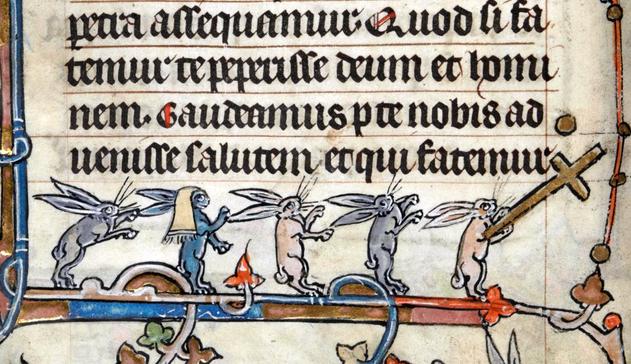 petra assequamur. Quod si fa
temur te peperisse deum et homi
nem. Gaudeamus p te nobis ad
uenisse salutem et qui fatemur